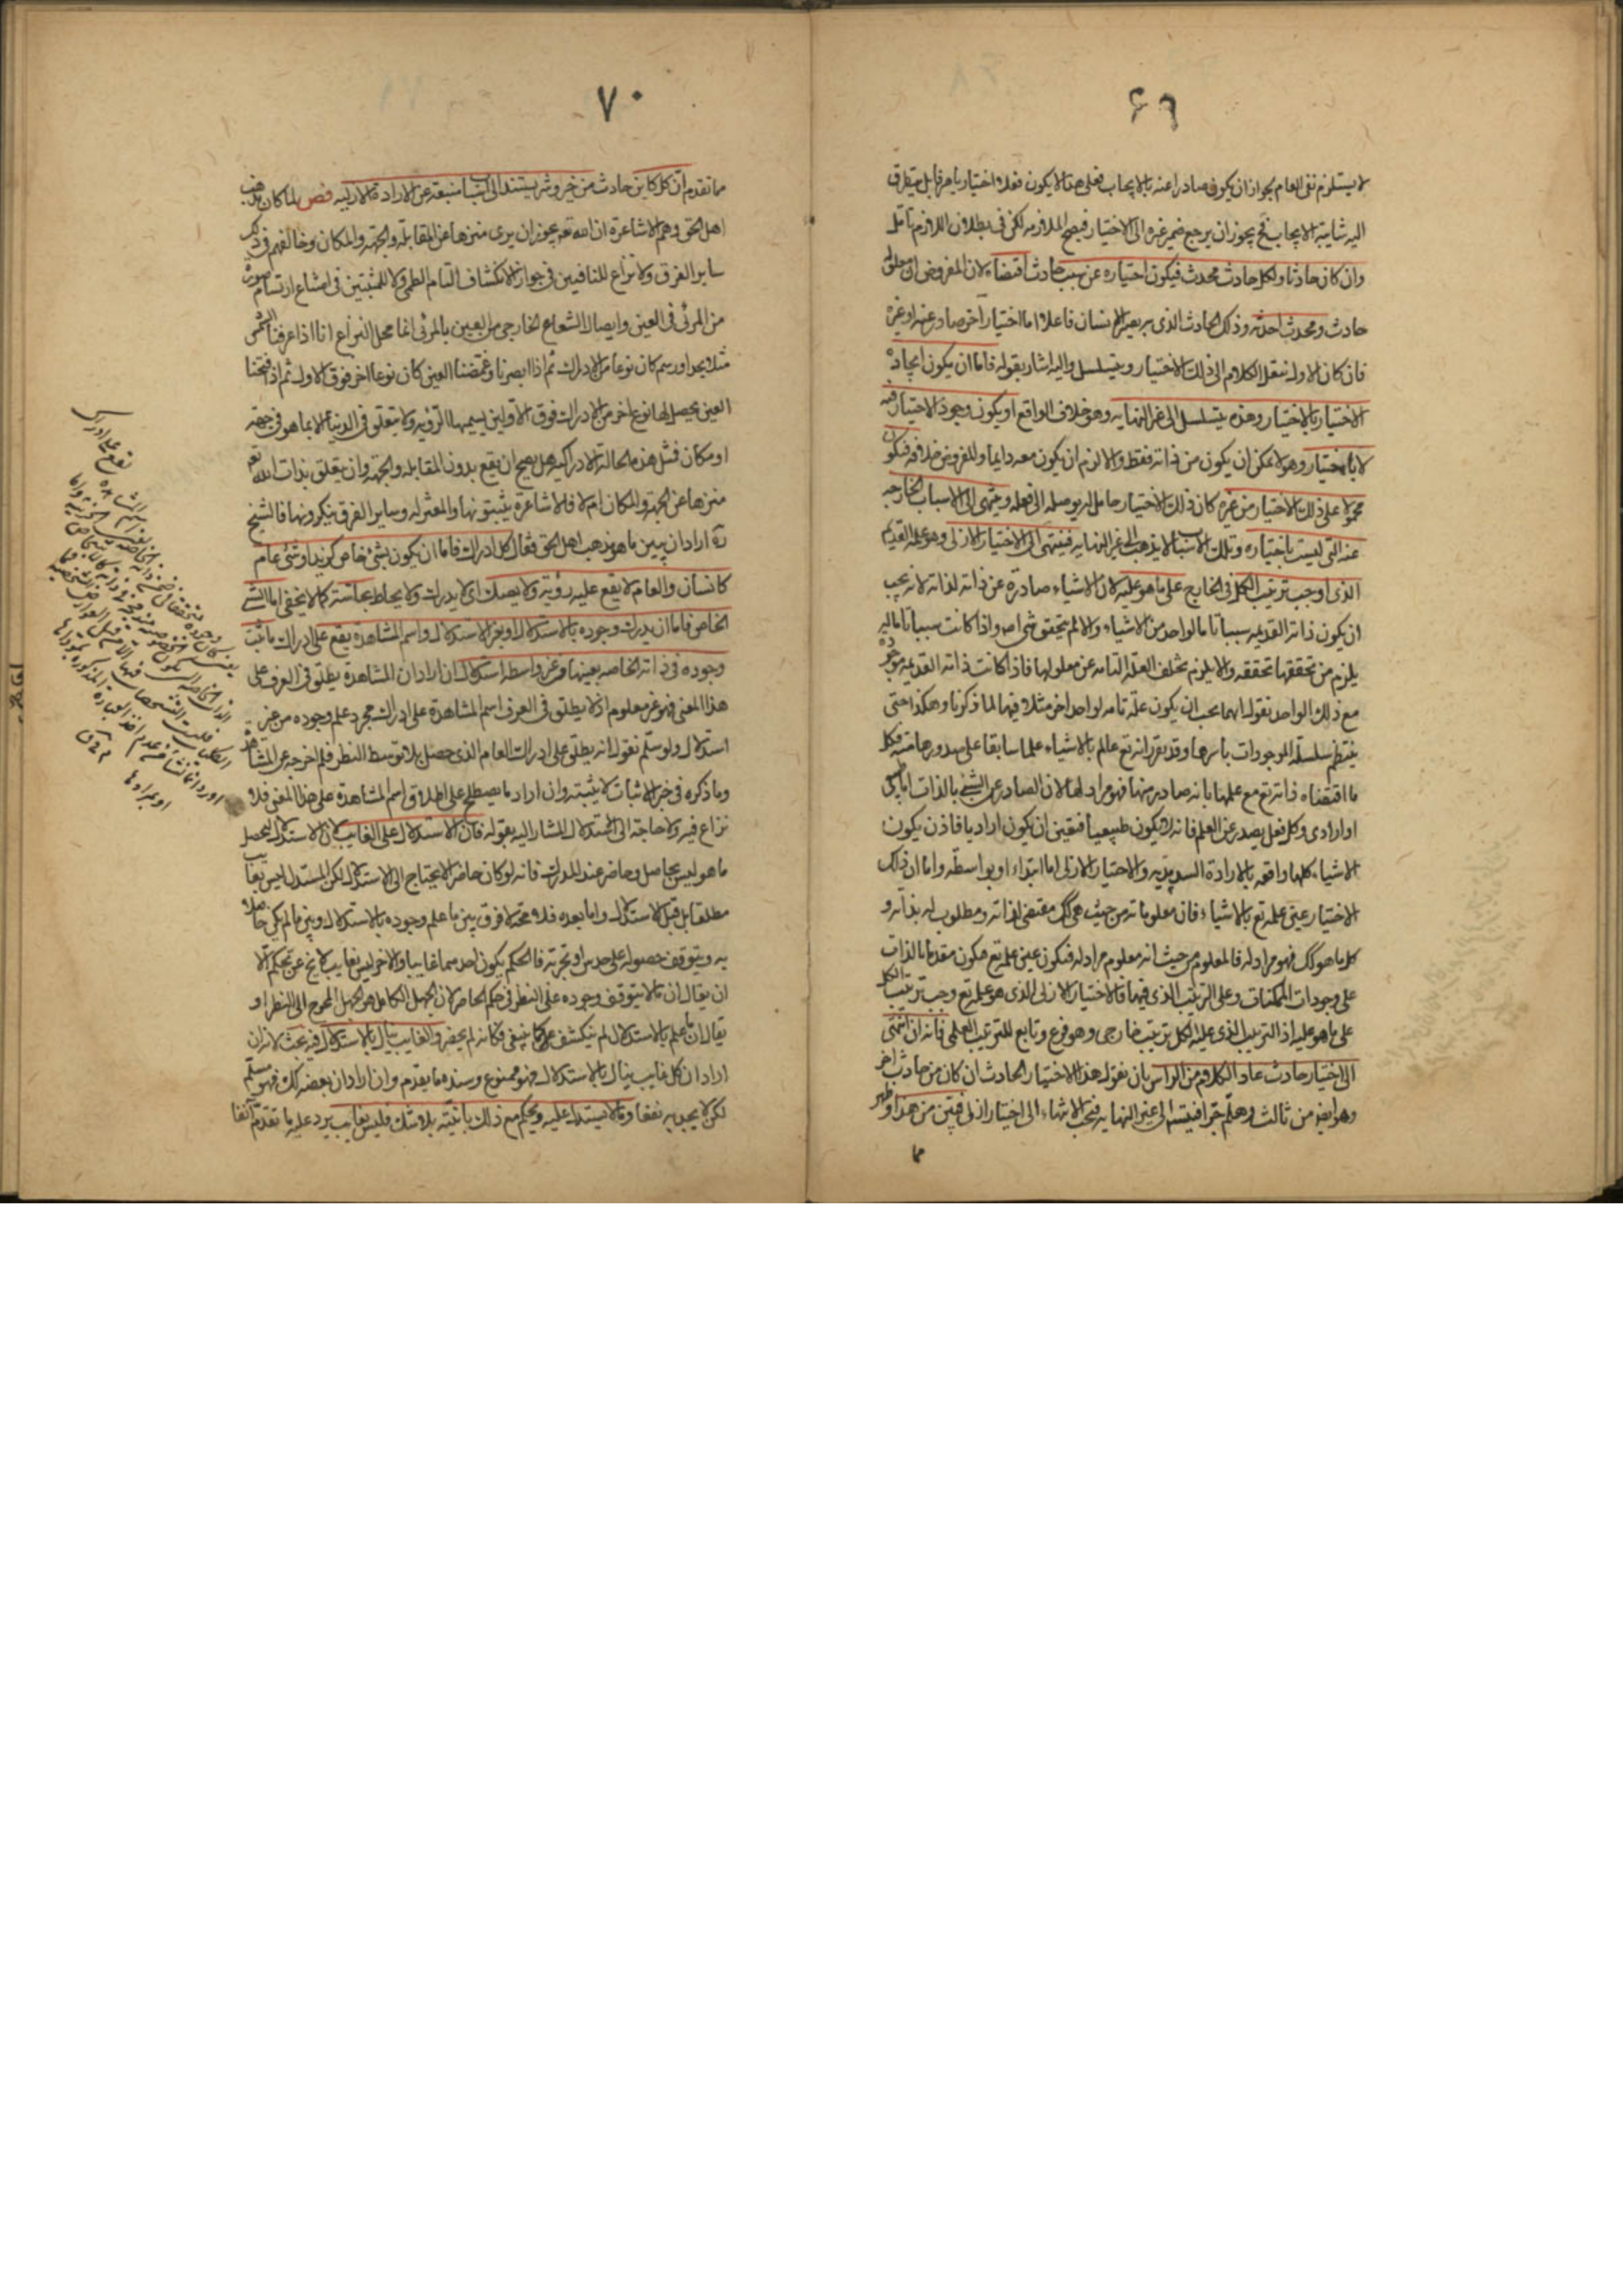 ۶۹
لا يستلزم نفى العام لجواز ان يكون صادرا عنه بالايجاب فعلى هذا لا يكون فعلا اختياريا صرفا بل يتطرق
اليه شايبة الايجاب فح يجوز ان يرجع ضمير غيره الى الاختيار فيصح الملازمه لكن فى بطلان اللازم تامل
وان كان حادثا ولكل حادث محدث فيكون اختياره عن سبب حادث اقتضاه لان المفروض انه معلول
حادث ومحدث احدثه وذلك الحادث الذى يريده الانسان فاعلا اما اختيار آخر صادر عنه او غيره
فان كان الاول ننقل الكلام الى ذلك الاختيار ويتسلسل واليه اشار بقوله فاما ان يكون ايجاده
الاختيار بالاختيار وهذه يتسلسل الى غير النهايه وهو خلاف الواقع او يكون وجود الاختيار فيه
لا بالاختيار وهو لا يمكن ان يكون من ذاته فقط والا لزم ان يكون معه دايما والمفروض خلافه فيكون
محمولا على ذلك الاختيار من غيره كان ذلك الاختيار حاملا له يوصله الى فعله وينتهى الى الاسباب الخارجه
عنه التى ليست باختياره وتلك الاسباب لا يذهب الى غير النهايه فينتهى الى الاختيار الازلى وهو علمه القديم
الذى اوجب ترتيب الكل فى الخارج على ما هو عليه لان الاشياء صادرة عن ذاته لذاته لانه يجب
ان يكون ذاته القديمه سببا تاما لواحد من الاشياء والا لم يتحقق شى اصلا واذا كانت سببا تاما له
يلزم من تحققها تحققه والا يلزم تخلف العلة التامه عن معلولها فاذا كانت ذاته القديمه موجوده
مع ذلك الواحد نقول انهما يجب ان يكون علة تامه لواحد اخر مثلا فيهما لما ذكرنا وهكذا حتى
ينتظم سلسلة الموجودات باسرها وقد تقرر انه تع عالم بالاشياء علما سابقا على صدورها منه فكل
ما اقتضاه ذاته تع مع علمها بانه صادر منها فهو مراد لها لان الصادر عن الشئ بالذات اما طبيعى
او ارادى وكل فعل يصدر عن العلم فانه لا يكون طبيعيا فتعين ان يكون اراديا فاذن يكون
الاشياء كلها واقعه بالارادة السرمديه والاختيار الازلى اما ابتداء او بواسطه واما ان ذلك
الاختيار عين علمه تع بالاشياء فان معلوماته من حيث هى كك مقتضى لذاته ومطلوب له بذاته و
كل ما هو كك فهو مراد له فالمعلوم من حيث انه معلوم مراد له فيكون عين علمه تع فيكون متقدما بالذات
على وجودات الممكنات وعلى الترتيب الذى فيها فالاختيار الازلى الذى هو علمه تع وجب ترتيب الكل
على ما هو عليه اذ الترتيب الذى عليه الكل ترتيب خارجى وهو فرع وتابع للترتيب العلمى فانه ان انتهى
الى اختيار حادث عاد الكلام من الراس بان نقول هذا الاختيار الحادث ان كان من حادث اخر
وهو ايضا من ثالث وهلم جرا فيتسلسل الى غير النهايه فيجب الانتهاء الى اختيار ازلى فتبين من هذا وظهر
مما
۷۰
ما تقدم ان كل كاين حادث من خير وشر يستند الى اسباب منبعثة عن الارادة الازليه فص لما كان مذهب
اهل الحق وهم الاشاعرة ان الله تع يجوز ان يرى منزها عن المقابلة والجهة والمكان وخالفهم فى ذلك
ساير الفرق ولا نزاع للنافيين فى جواز الانكشاف التام العلمى ولا للمثبتين فى امتناع ارتسام صورة
من المرئى فى العين وايصال الشعاع الخارجى من العين بالمرئى انما محل النزاع انا اذا عرفنا الشمس
مثلا بحد او رسم كان نوعا من الادراك ثم اذا ابصرنا وغمضنا العين كان نوعا اخر فوق الاول ثم اذا فتحنا
العين يحصل لها نوع اخر من الادراك فوق الاولين نسميها الرؤيه ولا يتعلق فى الدنيا الا بما هو فى جهه
او مكان فمثل هذه الحالة الادراكيه هل يصح ان يقع بدون المقابله والجهة وان يتعلق بذات الله تع
منزها عن الجهة والمكان ام لا فالاشاعرة يثبتونها والمعتزله وساير الفرق ينكرونها فالشيخ
ره اراد ان يبين ما هو مذهب اهل الحق فقال كل ادراك فاما ان يكون بشئ خاص كزيد او شئ عام
كانسان والعام لا يقع عليه رؤية ولا يصك اى لا يدرك ولا يحاط بحاسة كما لا يخفى اما الشئ
الخاص فاما ان يدرك وجوده بالاستدلال او بغير الاستدلال واسم المشاهدة يقع على ادراك ما ثبت
وجوده فى ذاته الخاصه بعينها من غير واسطه استدلال ان اراد ان المشاهدة يطلق فى العرف على
هذا المعنى فهو غير معلوم اذ لا يطلق فى العرف اسم المشاهدة على ادراك مجرد علم وجوده من غير
استدلال ولو سلم نقول انه يطلق على ادراك العام الذى حصل بلا توسط النظر فلم اخرجه عن المشاهدة
وما ذكره فى حيز الاثبات لا يثبته وان اراد ما يصطلح على اطلاق اسم المشاهدة على هذا المعنى فلا
نزاع فيه ولا حاجة الى الاستدلال المشار اليه بقوله فان الاستدلال على الغايب لان الاستدلال ليحصل
ما هو ليس بحاصل وحاضر عند المدرك فانه لو كان حاضرا لا يحتاج الى الاستدلال لكن المستدل ليس بغايب
مطلقا بل قبل الاستدلال واما بعده فلا فرق بين ما علم وجوده بالاستدلال وبين ما لم يكن حاصلا
به ويتوقف حصوله على حدس او تجربة فالحكم بكون احدهما غايبا والاخر ليس بغايب لا يخ عن تحكم الا
ان يقال ان ما لا يتوقف وجوده على النظر فى حكم الحاضر لان الجهل الكامل هو الجهل المحوج الى النظر او
يقال ان ما علم بالاستدلال لم ينكشف على ما ينبغى فكانه لم يحضر والغايب ينال بالاستدلال فيه بحث لانه ان
اراد ان كل غايب ينال بالاستدلال فهو ممنوع وسنده ما تقدم وان اراد ان بعضه كك فهو مسلم
لكن لا يجديه نفعا وما لا يستدل عليه ويحكم مع ذلك بانيته بلا شك فليس بغايب يرد عليه ما تقدم آنفا